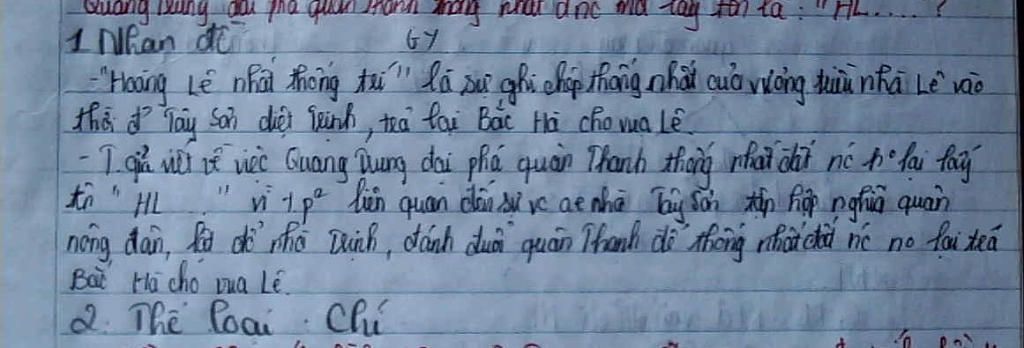 Quang Trung đại phá quân Thanh thống nhất đnc mà lấy tên là : "HL.....?
1 Nhan đề GY
- "Hoàng Lê nhất thống trí" là sự ghi chép thống nhất của vương triều nhà Lê vào
thời đ' Tây Sơn diệt Trịnh, trả lại Bắc Hà cho vua Lê.
- T.giả viết về việc Quang Trung đại phá quân Thanh thống nhất đất nc lại lấy
tên "HL " vì 1 p² liên quan đến sự vc ae nhà Tây Sơn tập hợp nghĩa quân
nông dân, đổ nhà Trịnh, đánh đuổi quân Thanh để thống nhất đất nc no lại trả
Bắc Hà cho vua Lê.
2. Thể loại : Chí